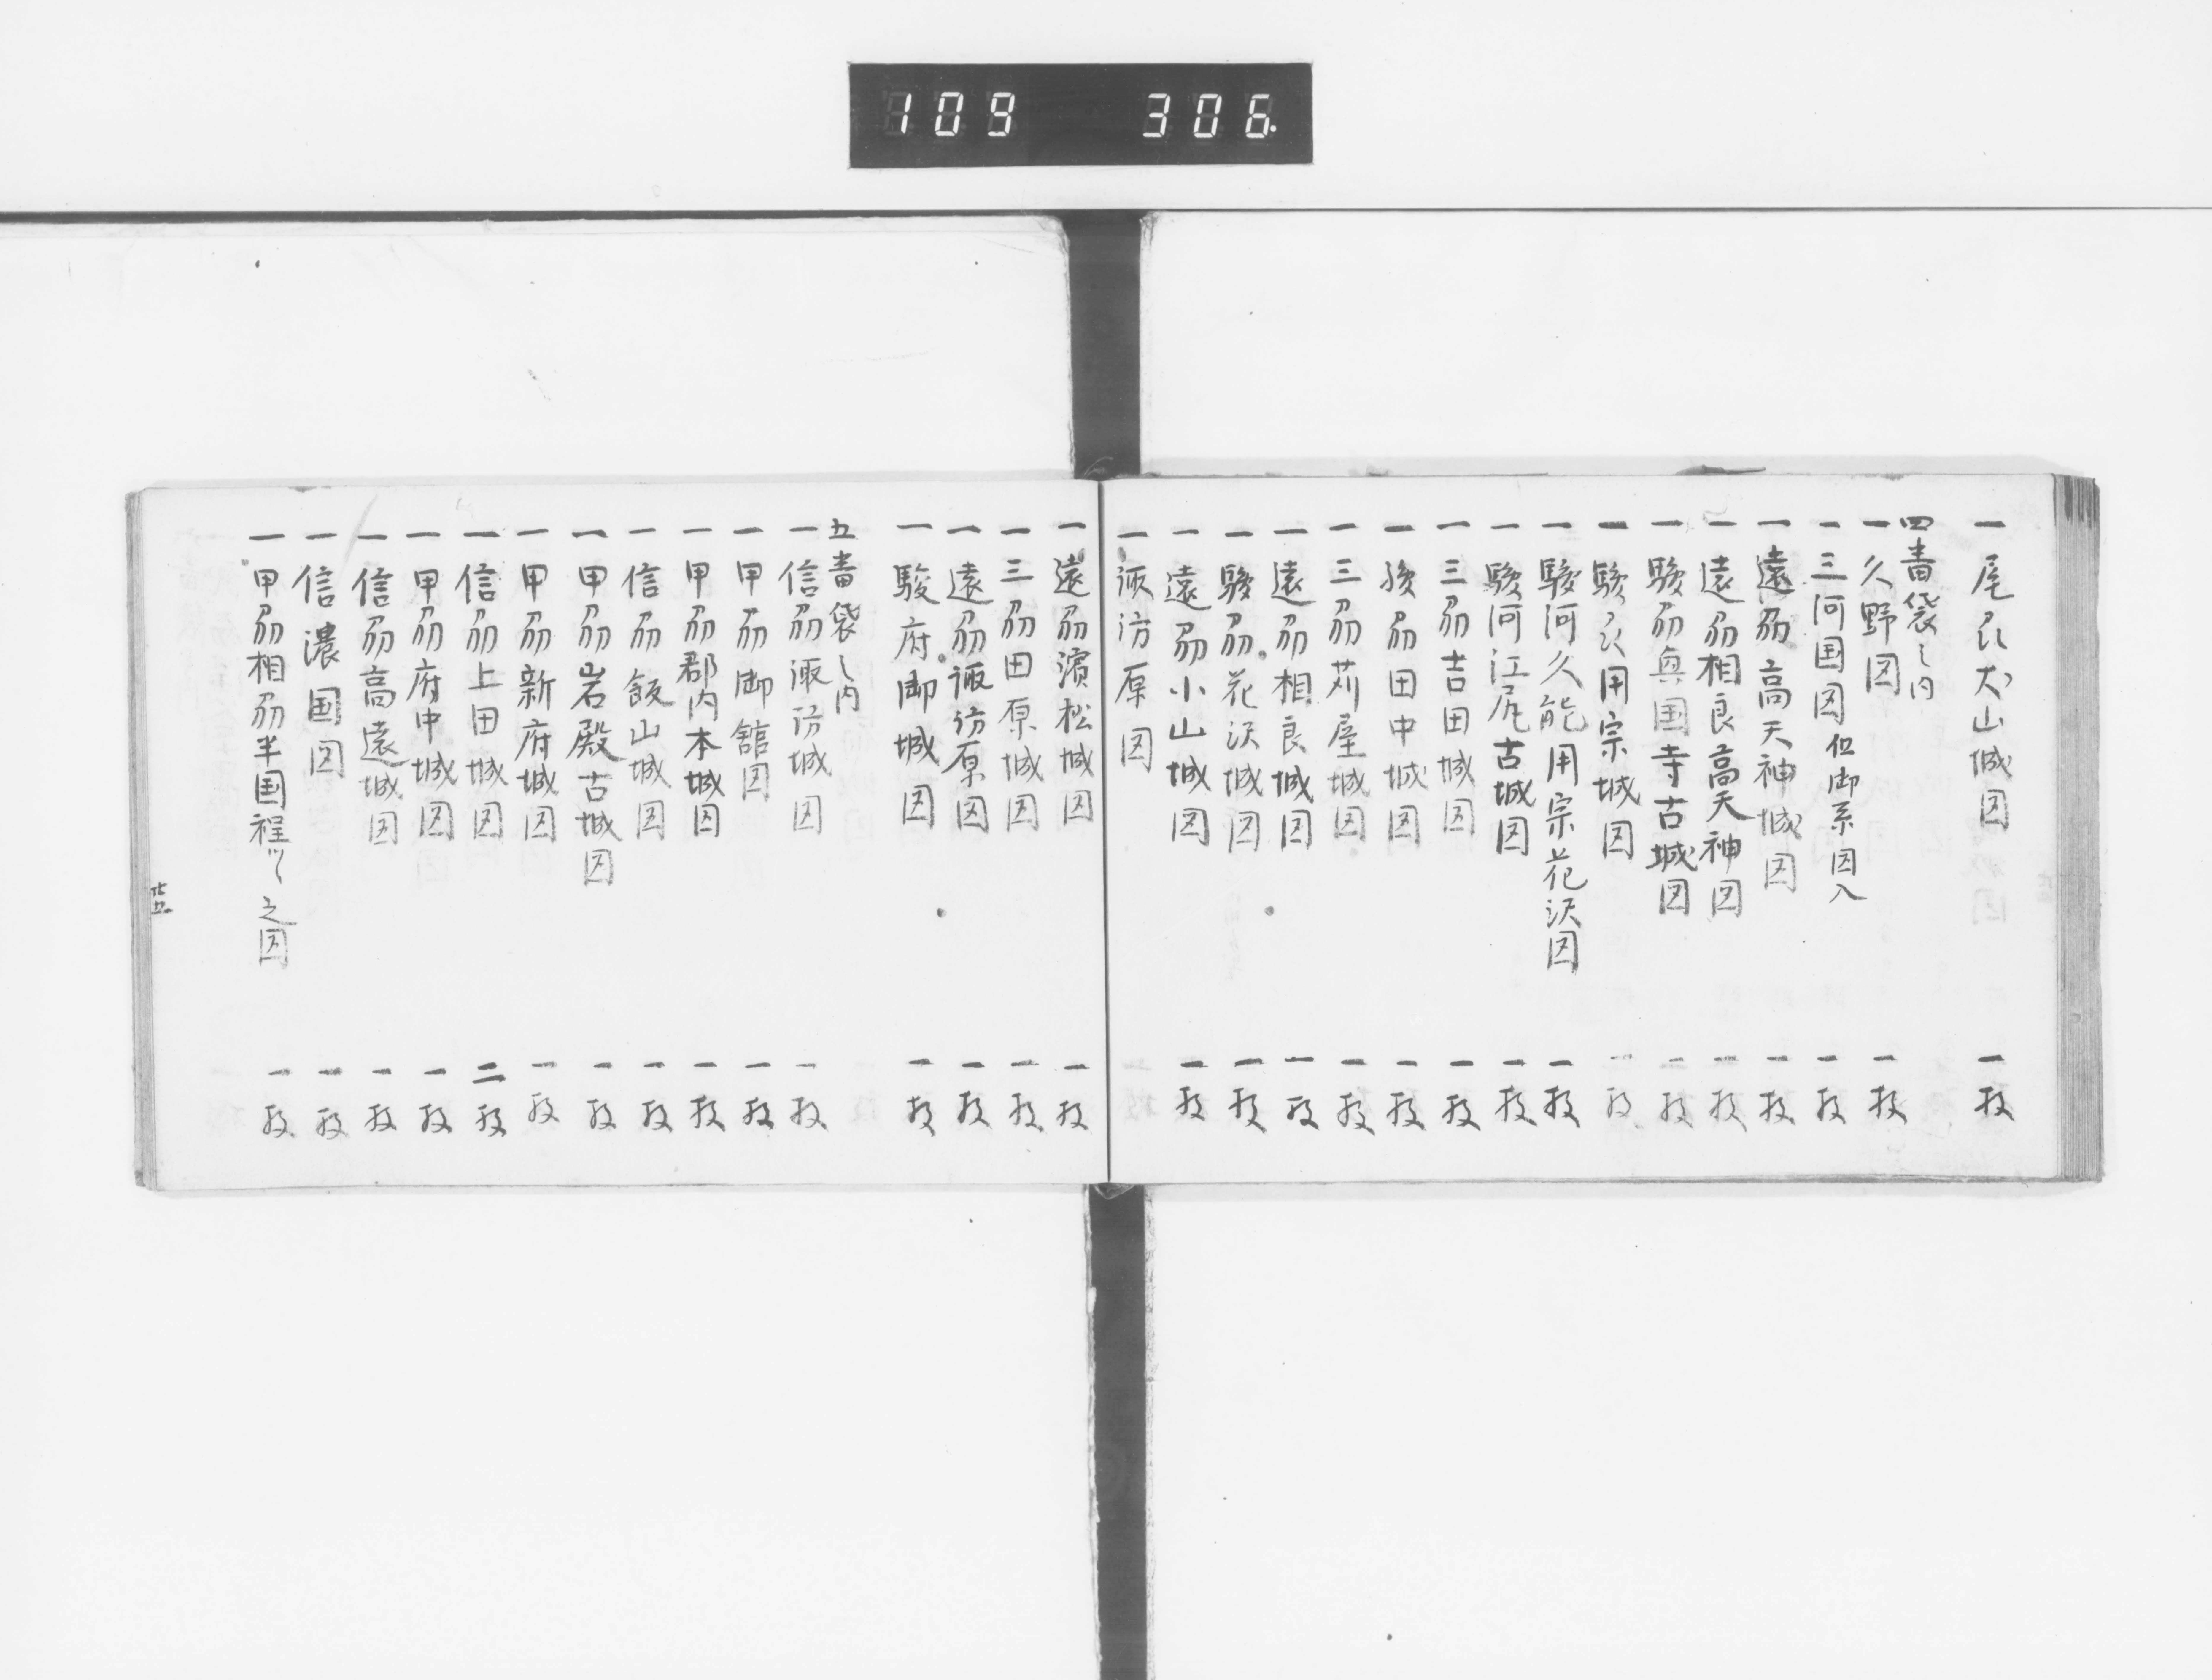 109 306.
一尾州犬山城図 一枚
四番袋之内
一久野図 一枚
一三河国図 但御系図入 一枚
一遠州高天神城図 一枚
一遠州相良高天神図 一枚
一駿州興国寺古城図 一枚
一駿州用宗城図 一枚
一駿河久能用宗花沢図 一枚
一駿河江尻古城図 一枚
一三州吉田城図 一枚
一駿州田中城図 一枚
一三州苅屋城図 一枚
一遠州相良城図 一枚
一駿州花沢城図 一枚
一遠州小山城図 一枚
一諏訪原図
一遠州濱松城図 一枚
一三州田原城図 一枚
一遠州諏訪原図 一枚
一駿府御城図 一枚
五番袋之内
一信州諏訪城図 一枚
一甲州御舘図 一枚
一甲州郡内本城図 一枚
一信州飯山城図 一枚
一甲州岩殿古城図 一枚
一甲州新府城図 一枚
一信州上田城図 二枚
一甲州府中城図 一枚
一信州高遠城図 一枚
一信濃国図 一枚
一甲州相州半国程ツヽ之図 一枚